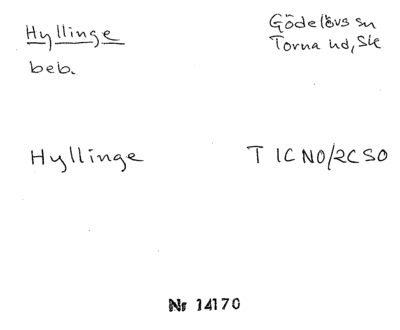 Hyllinge
Gödelövs sn
beb.
Torna hd, Sk
Hyllinge
T 1C NO/2C SO
Nr 14170